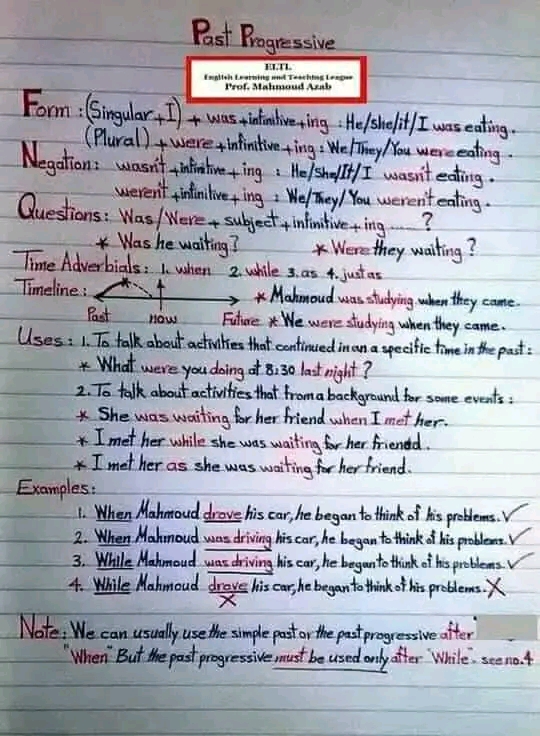 Past Progressive
ELTL
English Learning and Teaching League
Prof. Mahmoud Azab
Form : (Singular + I) + was + infinitive + ing : He/she/it/I was eating.
(Plural) + were + infinitive + ing : We/They/You were eating.
Negation: wasn't + infinitive + ing : He/She/It/I wasn't eating.
weren't + infinitive + ing : We/They/You weren't eating.
Questions: Was/Were + subject + infinitive + ing ......?
* Was he waiting? * Were they waiting?
Time Adverbials: 1. when 2. while 3. as 4. just as
Timeline:
* Mahmoud was studying when they came.
Past now Future * We were studying when they came.
Uses: 1. To talk about activities that continued in an a specific time in the past:
* What were you doing at 8:30 last night?
2. To talk about activities that from a background for some events:
* She was waiting for her friend when I met her.
* I met her while she was waiting for her friend.
* I met her as she was waiting for her friend.
Examples:
1. When Mahmoud drove his car, he began to think of his problems. ✓
2. When Mahmoud was driving his car, he began to think of his problems. ✓
3. While Mahmoud was driving his car, he began to think of his problems. ✓
4. While Mahmoud drove his car, he began to think of his problems. X
X
Note: We can usually use the simple past or the past progressive after
"When" But the past progressive must be used only after "While". see no. 4